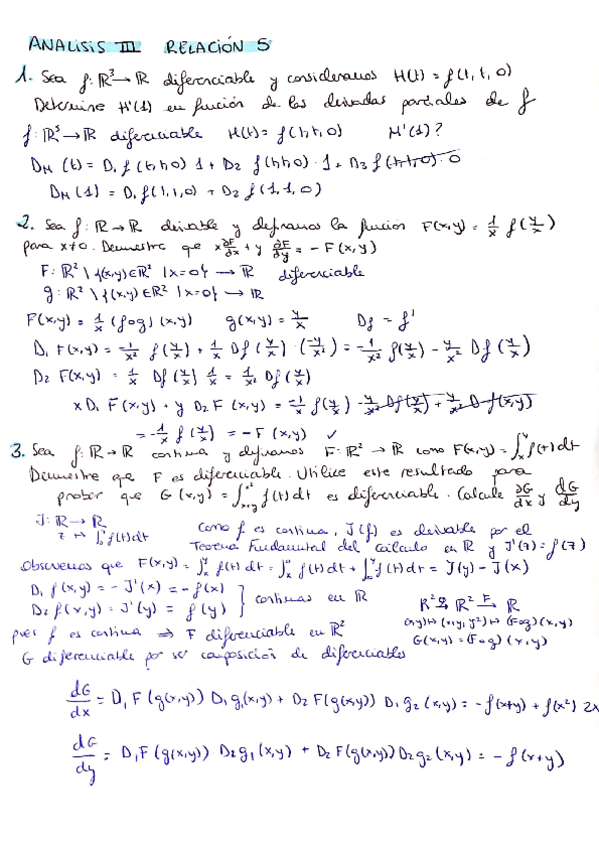 ANALISIS III RELACIÓN 5
1. Sea f: R³ → R diferenciable y consideramos H(t) = f(t, t, 0)
Determine H'(1) en función de las derivadas parciales de f
f: R³ → R diferenciable H(t) = f(t, t, 0) H'(1)?
D_H (t) = D₁ f(t, t, 0) · 1 + D₂ f(t, t, 0) · 1 + D₃ f(t, t, 0) · 0
D_H (1) = D₁ f(1, 1, 0) + D₂ f(1, 1, 0)
2. Sea f: R → R derivable y definamos la función F(x,y) = 1/x f(y/x)
para x≠0. Demuestre que x ∂F/∂x + y ∂F/∂y = - F(x,y)
F: R² \ {(x,y) ∈ R² | x=0} → R diferenciable
g: R² \ {(x,y) ∈ R² | x=0} → R
F(x,y) = 1/x (f∘g)(x,y) g(x,y) = y/x Df = f'
D₁ F(x,y) = -1/x² f(y/x) + 1/x Df(y/x) · (-y/x²) = -1/x² f(y/x) - y/x³ Df(y/x)
D₂ F(x,y) = 1/x Df(y/x) 1/x = 1/x² Df(y/x)
x D₁ F(x,y) + y D₂ F(x,y) = -1/x f(y/x) - y/x² Df(y/x) + y/x² Df(y/x)
= -1/x f(y/x) = - F(x,y) ✓
3. Sea f: R → R continua y definamos F: R² → R como F(x,y) = ∫ₓʸ f(t) dt
Demuestre que F es diferenciable. Utilice este resultado para
probar que G(x,y) = ∫ f(t) dt es diferenciable. Calcule ∂G/∂x y dG/dy
J: R → R
z ↦ ∫₀ᶻ f(t) dt
Como f es continua, J(f) es derivable por el
Teorema Fundamental del Cálculo en R y J'(z) = f(z)
Observemos que F(x,y) = ∫ₓʸ f(t) dt = ∫ₓ⁰ f(t) dt + ∫₀ʸ f(t) dt = J(y) - J(x)
D₁ f(x,y) = - J'(x) = - f(x)
D₂ f(x,y) = J'(y) = f(y) } continuas en R
R² →g R² →F R
G(x,y) = (F∘g)(x,y)
pues f es continua ⇒ F diferenciable en R²
G diferenciable por ser composición de diferenciables
dG/dx = D₁ F(g(x,y)) D₁ g₁(x,y) + D₂ F(g(x,y)) D₁ g₂(x,y) = - f(x+y) + f(x²) 2x
dG/dy = D₁ F(g(x,y)) D₂ g₁(x,y) + D₂ F(g(x,y)) D₂ g₂(x,y) = - f(x+y)